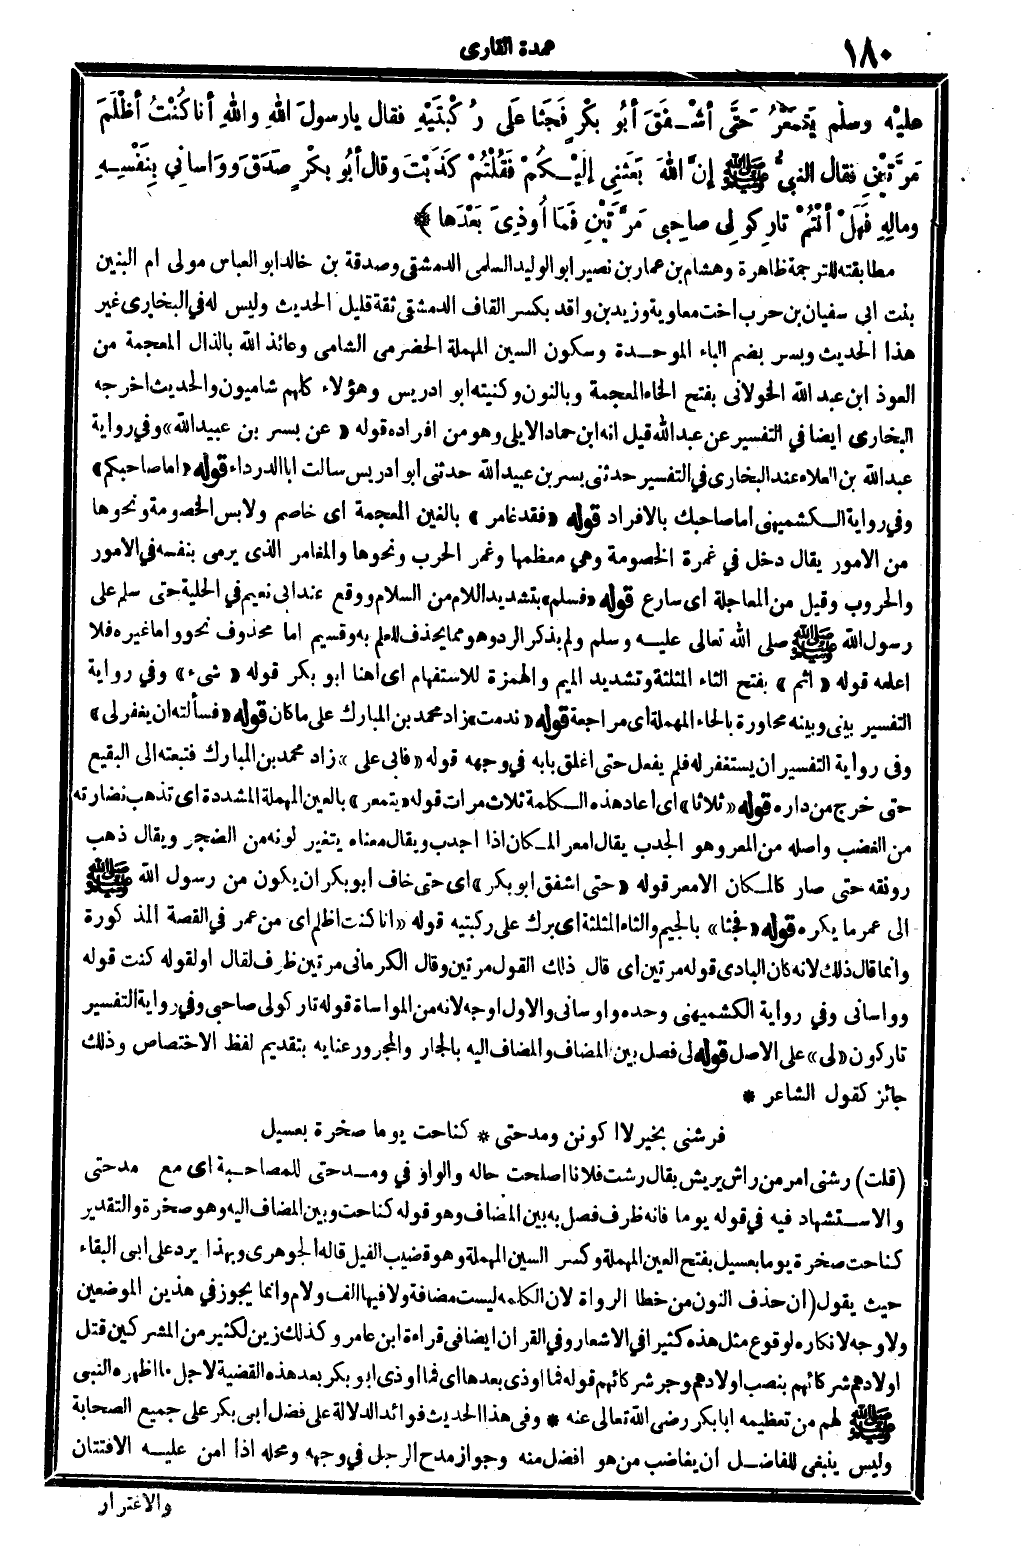 ١٨٠
عمدة القارى
عليْه وسلّم يَتمَعَّرُ حَتَّى أشْـفَقَ أبُو بكْرٍ فَجَثا عَلَى رُكْبتَيْهِ فقال يارسولَ اللهِ واللهِ أنا كُنْتُ أظْلَمَ
مَرَّتيْنِ فقال النبيُّ ﷺ إنَّ اللهَ بَعَثنِى إليْـكُمْ فقُلْتُمْ كَذَبْتَ وقال أبُو بكْرٍ صَدَقَ وواسانِي بِنَفْسِـهِ
ومالِهِ فهَلْ أنْتُمْ تارِكو لِى صاحِبِى مَرَّتَيْنِ فَمَا اُوذِىَ بَعْدَها ﴾ *
مطابقته للترجمة ظاهرة وهشام بن عمار بن نصير ابو الوليد السلمى الدمشقى وصدقة بن خالد ابو العباس مولى ام البنين
بنت ابى سفيان بن حرب اخت معاوية وزيد بن واقد بكسر القاف الدمشقى ثقة قليل الحديث وليس له في البخارى غير
هذا الحديث وبسر بضم الباء الموحـدة وسكون السين المهملة الحضرمى الشامى وعائذ الله بالذال المعجمة من
العوذ ابن عبد الله الخولانى بفتح الخاء المعجمة وبالنون وكنيته ابو ادريس وهؤلاء كلهم شاميون والحديث اخرجه
البخارى ايضا في التفسير عن عبدالله قيل انه ابن حماد الايلى وهو من افراده قوله «عن بسر بن عبيدالله» وفي رواية
عبدالله بن العلاء عند البخارى في التفسير حدثنى بسر بن عبيد الله حدثنى ابو ادريس سالت ابا الدرداء قوله «اما صاحبكم»
وفي رواية الـكشميهنى اما صاحبك بالافراد قوله «فقد غامر» بالغين المعجمة اى خاصم ولابس الخصومة ونحوها
من الامور يقال دخل في غمرة الخصومة وهي معظمها وغمر الحرب ونحوها والمغامر الذى يرمى بنفسه في الامور
والحروب وقيل من المعاجلة اى سارع قوله «فسلم» بتشديد اللام من السلام ووقع عند ابى نعيم في الحلية حتى سلم على
رسول الله ﷺ صلى الله تعالى عليـه وسلم ولم يذكر الرد وهو مما يحذف للعلم به وقسيم اما محذوف نحو واما غيره فلا
اعلمه قوله «اثم» بفتح الثاء المثلثة وتشديد الميم والهمزة للاستفهام اى اهنا ابو بكر قوله «شىء» وفي رواية
التفسير بينى وبينه محاورة بالحاء المهملة اى مراجعة قوله «ندمت» زاد محمد بن المبارك على ما كان قوله «فسألته ان يغفر لى»
وفى رواية التفسير ان يستغفر له فلم يفعل حتى اغلق بابه في وجهه قوله «فابى على» زاد محمد بن المبارك فتبعته الى البقيع
حتى خرج من داره قوله «ثلاثا» اى اعاد هذه الـكلمة ثلاث مرات قوله «يتمعر» بالعين المهملة المشددة اى تذهب نضارته
من الغضب واصله من المعر وهو الجدب يقال امعر المـكان اذا اجدب ويقال معناه يتغير لونه من الضجر ويقال ذهب
رونقه حتى صار كالمـكان الامعر قوله «حتى اشفق ابو بكر» اى حتى خاف ابو بكر ان يكون من رسول الله ﷺ
الى عمر ما يكره قوله «فجثا» بالجيم والثاء المثلثة اى برك على ركبتيه قوله «انا كنت اظلم اى من عمر في القصة المذكورة
وانما قال ذلك لانه كان البادى قوله مرتين اى قال ذلك القول مرتين وقال الكرمانى مرتين ظرف لقال او لقوله كنت قوله
وواسانى وفي رواية الكشميهنى وحده واوسانى والاول اوجه لانه من المواساة قوله تاركو لى صاحبى وفي رواية التفسير
تاركون «لى» على الاصل قوله لى فصل بين المضاف والمضاف اليه بالجار والمجرور عنايه بتقديم لفظ الاختصاص وذلك
جائز كقول الشاعر *
فرشنى بخير لاا كونن ومدحتى * كناحت يوما صخرة بعسيل
(قلت) رشنى امر من راش يريش يقال رشت فلانا اصلحت حاله والواو في ومـدحتى للمصاحبة اى مع مدحتى
والاسـتشهاد فيه في قوله يوما فانه ظرف فصل به بين المضاف وهو قوله كناحت وبين المضاف اليه وهو صخرة والتقدير
كناحت صخرة يوما بعسيل بفتح العين المهملة وكسر السين المهملة وهو قضيب الفيل قاله الجوهرى وبهذا يرد على ابى البقاء
حيث يقول (ان حذف النون من خطا الرواة لان الكلمة ليست مضافة ولا فيها الف ولام وانما يجوز في هذين الموضعين
ولا وجه لانكاره لوقوع مثل هذه كثيرا في الاشعار وفي القران ايضا فى قراءة ابن عامر وكذلك زين لكثير من المشركين قتل
اولادهم شركائهم بنصب اولادهم وجر شركائهم قوله فما اوذى بعدها اى فما اوذى ابو بكر بعد هذه القضية لاجل ما اظهره النبى
ﷺ لهم من تعظيمه ابا بكر رضى الله تعالى عنه * وفى هذا الحديث فوائد الدلالة على فضل ابى بكر على جميع الصحابة
وليس ينبغى للفاضـل ان يغاضب من هو افضل منه وجواز مدح الرجل في وجهه ومحله اذا امن عليـه الافتتان
والاغترار